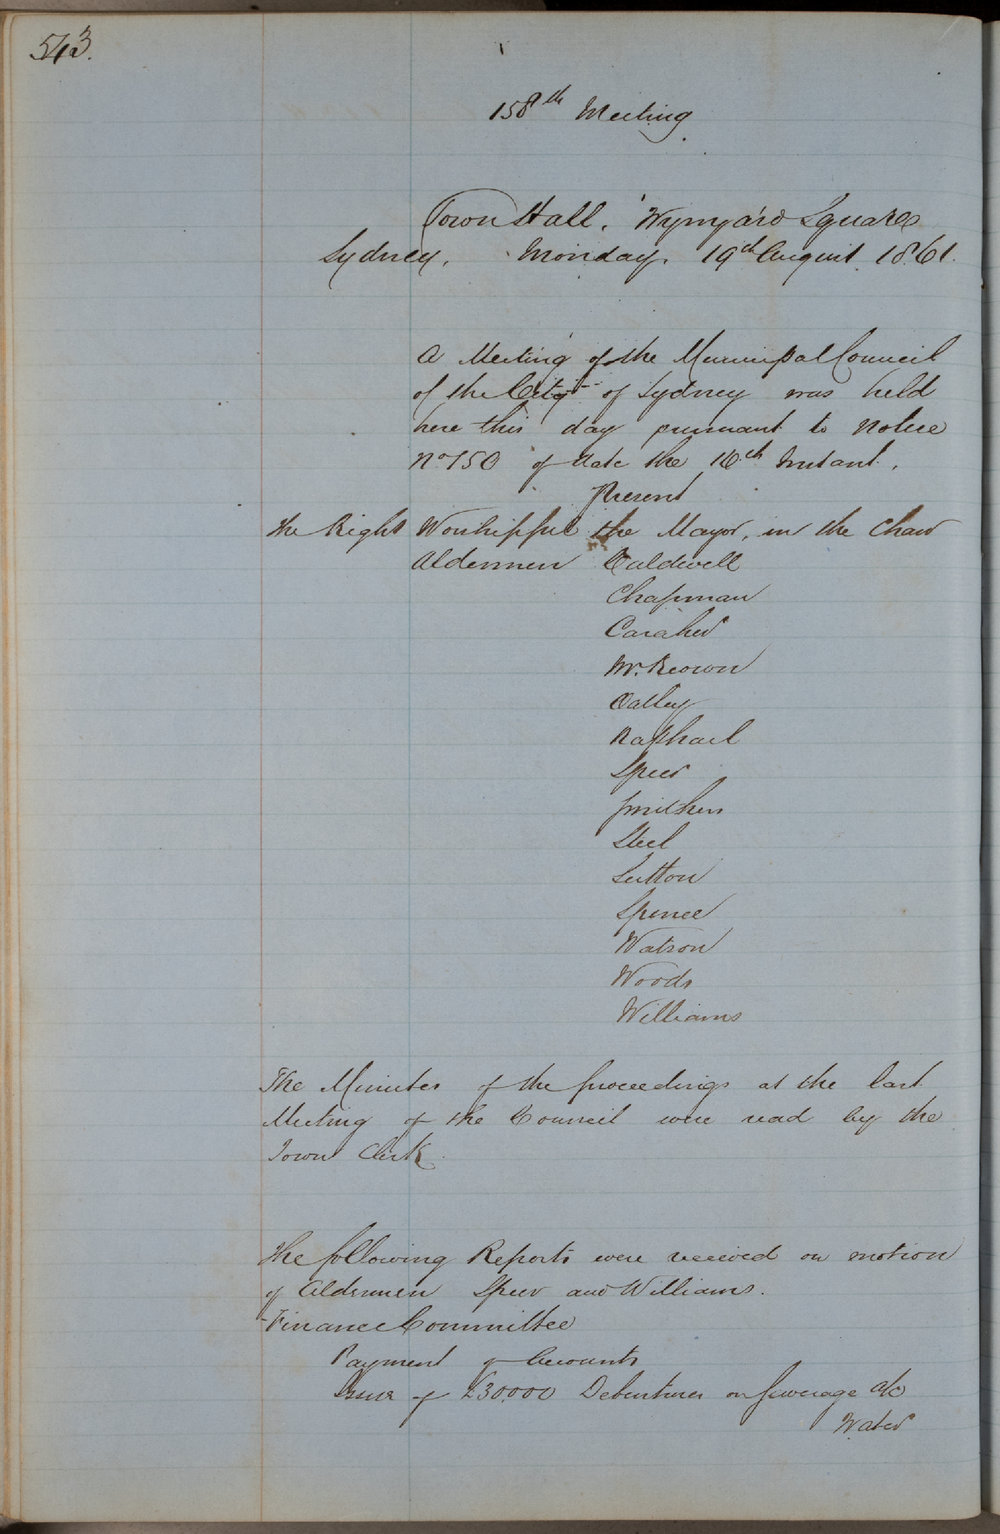 543.
158th Meeting
Town Hall. Wynyard Square
Sydney. Monday. 19th August 1861.
A Meeting of the Municipal Council
of the City of Sydney was held
here this day pursuant to Notice
No 150 of date the 16th Instant.
Present
The Right Worshipful the Mayor, in the Chair
Aldermen Caldwell
Chapman
Caraher
Mc.Keown
Oatley
Raphael
Speer
Smithers
Steel
Sutton
Spence
Watson
Woods
Williams
The Minutes of the proceedings at the last
Meeting of the Council were read by the
Town Clerk.
The following Reports were received on motion
of Aldermen Speer and Williams.
Finance Committee
Payment of Accounts
Issue of £30,000 Debentures on Sewerage a/c
Water